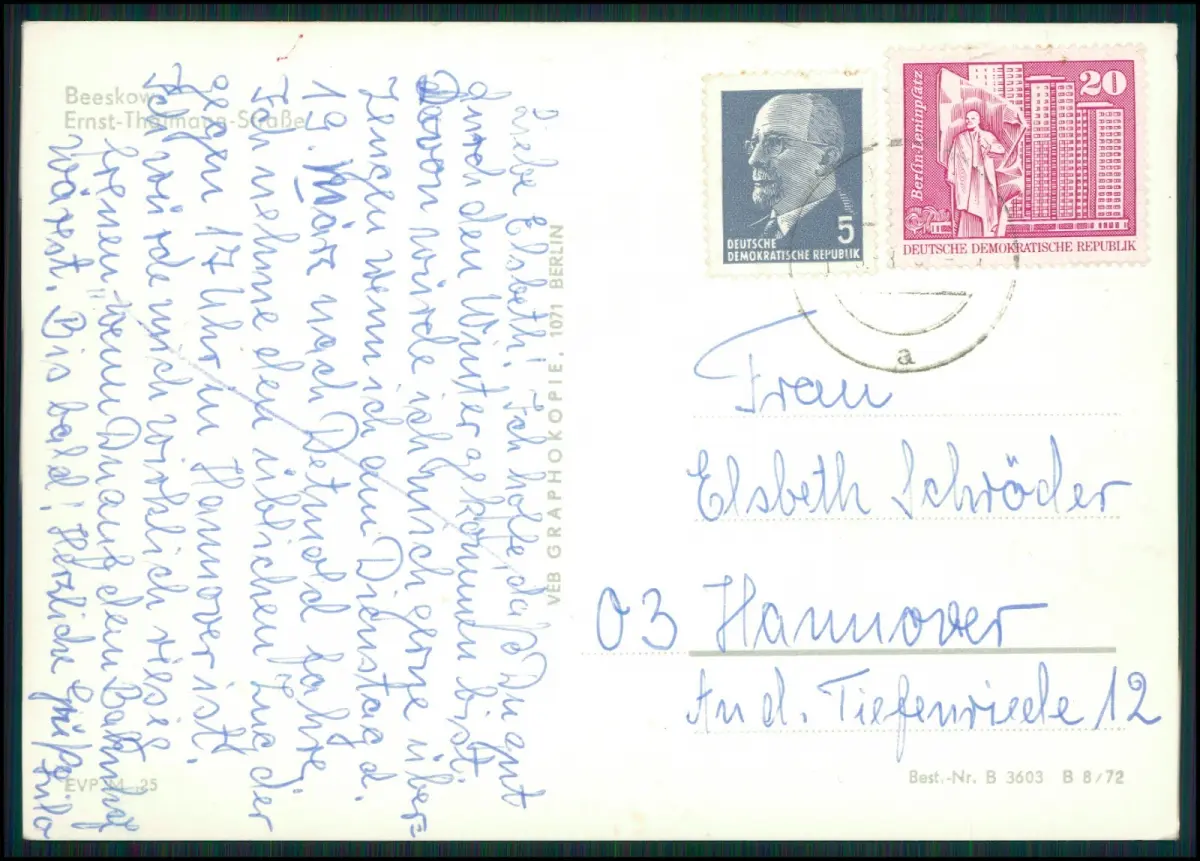 Beeskow
Ernst-Thälmann-Straße
Liebe Elsbeth! Ich hoffe, daß Du gut
durch den Winter gekommen bist.
Davon würde ich mich gerne über=
zeugen wenn ich am Dienstag d.
19. März nach Detmold fahre,
Ich nehme den üblichen Zug der
gegen 17 Uhr in Hannover ist.
Ich würde mich wirklich riesig
freuen, wenn Du auf dem Bahnhof
wärest. Bis bald! Herzliche Grüße
EVP M -.25
VEB GRAPHOKOPIE, 1071 BERLIN
5
DEUTSCHE
DEMOKRATISCHE REPUBLIK
Berlin-Leninplatz
20
DEUTSCHE DEMOKRATISCHE REPUBLIK
a
Frau
Elsbeth Schröder
03 Hannover
An d. Tiefenriede 12
Best.-Nr. B 3603 B 8/72